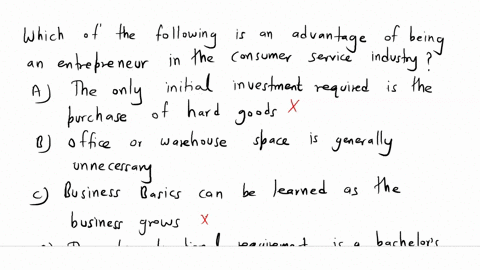 Which of the following is an advantage of being
an entrepreneur in the consumer service industry?
A) The only initial investment required is the
purchase of hard goods X
B) Office or warehouse space is generally
unnecessary
C) Business Basics can be learned as the
business grows x
requirement is a bachelor's